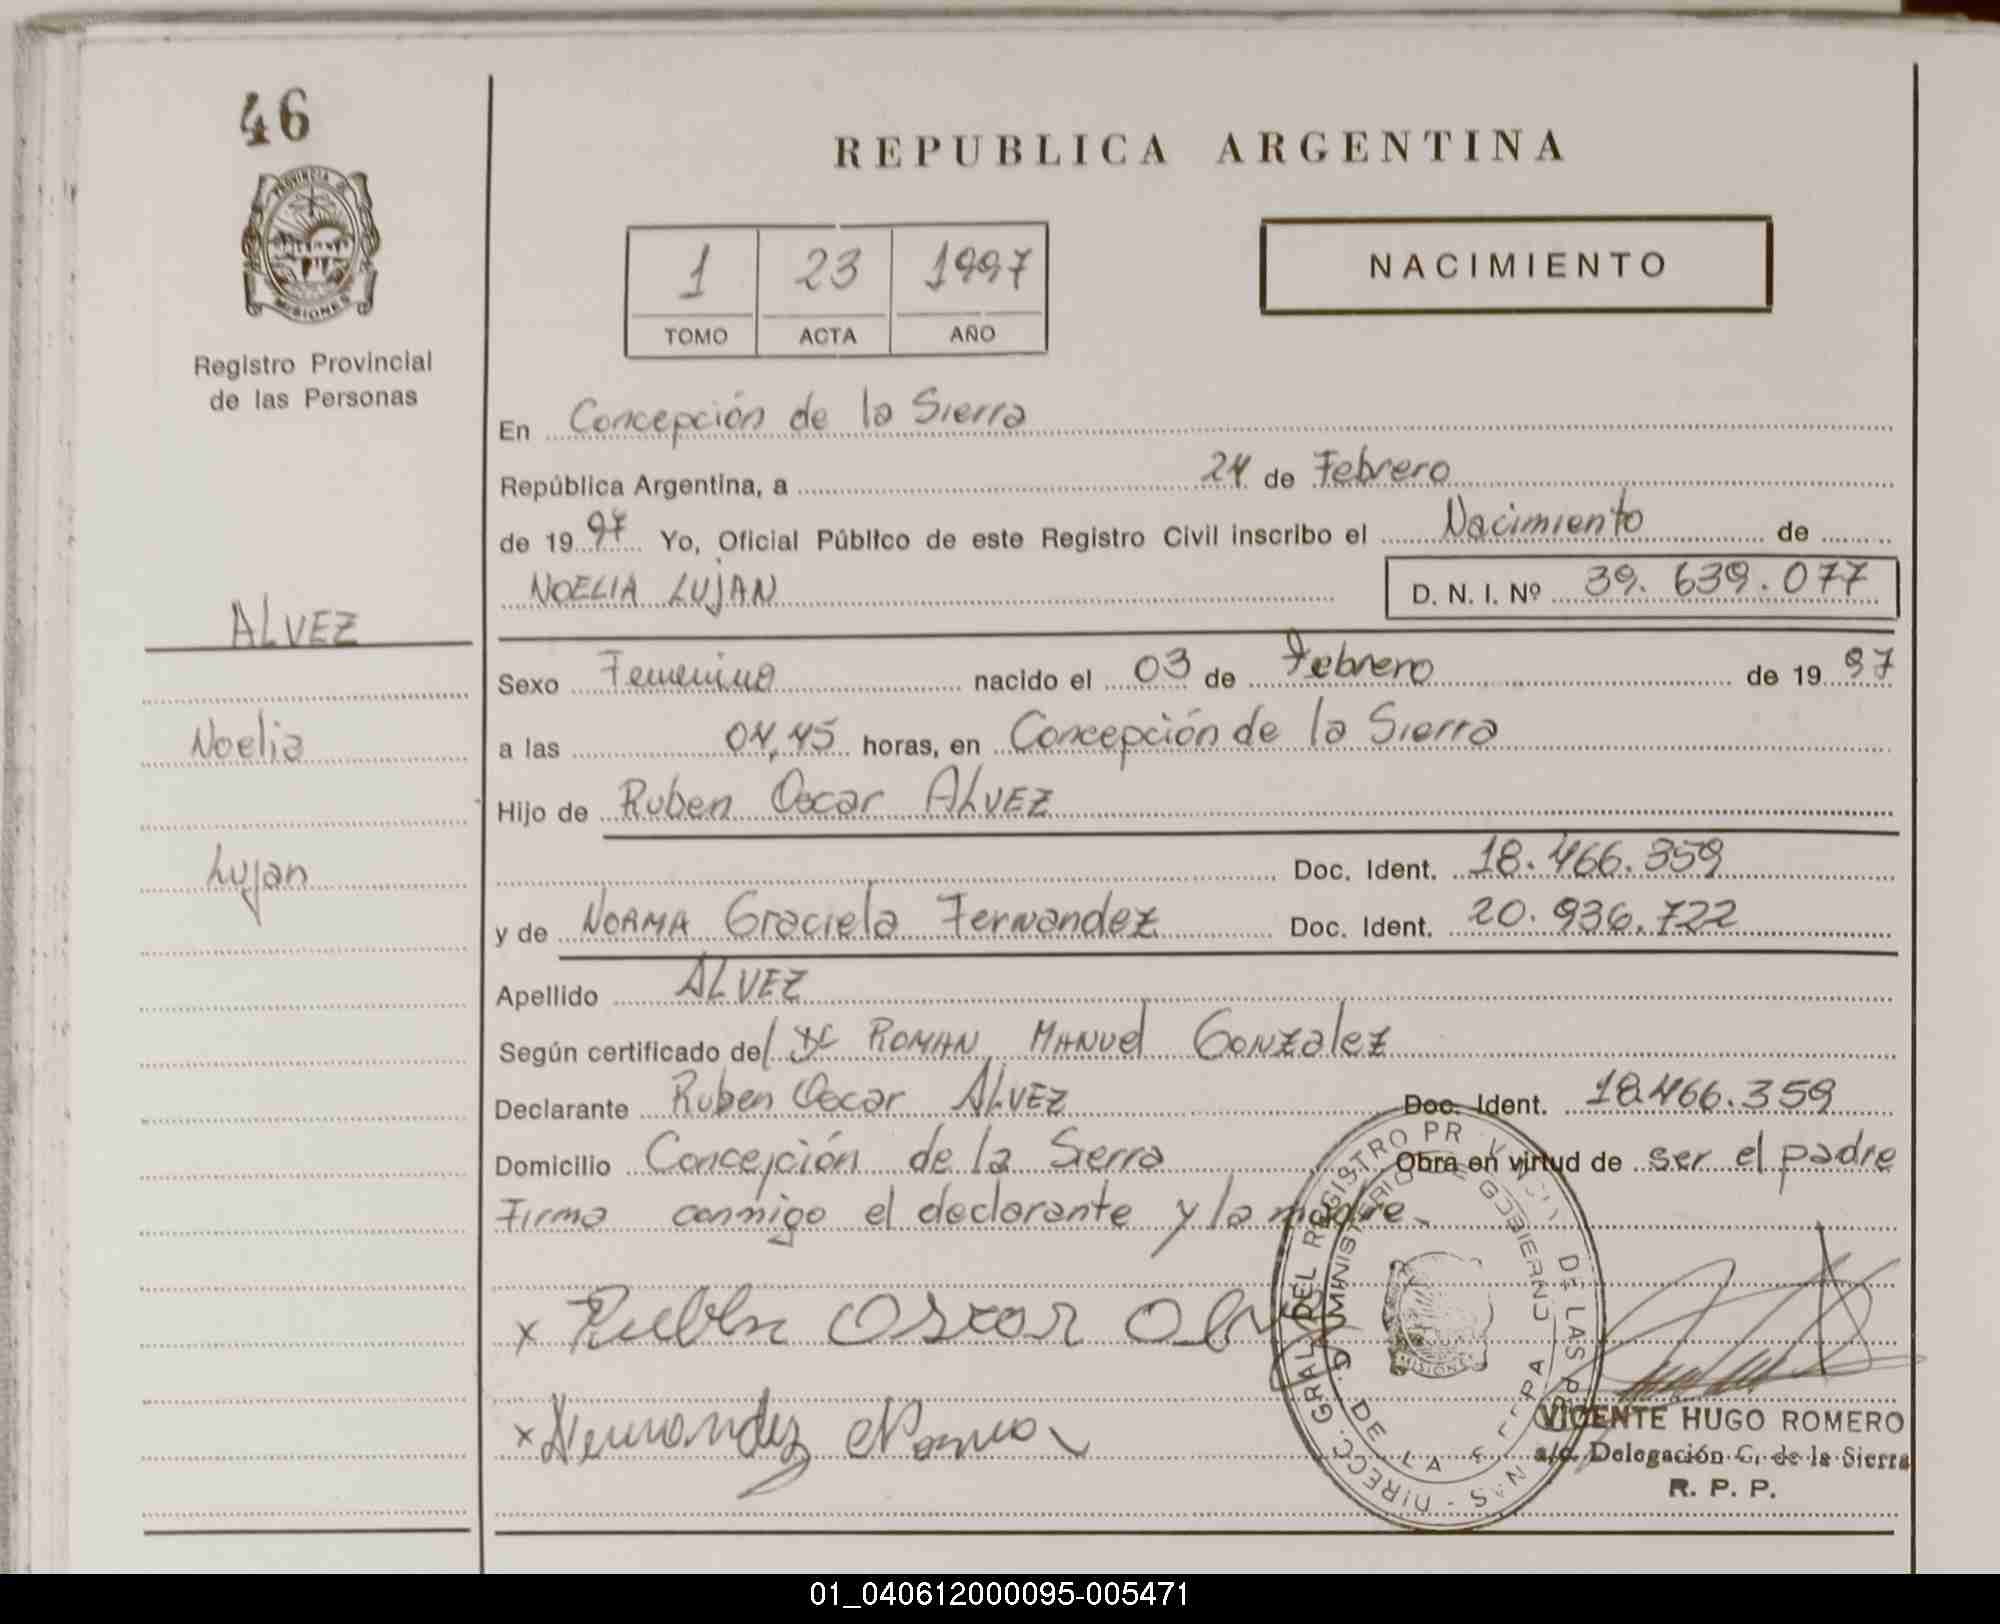 46
PROVINCIA DE
MISIONES
Registro Provincial
de las Personas
ALVEZ
Noelia
Lujan
REPUBLICA ARGENTINA
1 23 1997
TOMO ACTA AÑO
NACIMIENTO
En Concepción de la Sierra
República Argentina, a 24 de Febrero
de 1997 Yo, Oficial Público de este Registro Civil inscribo el Nacimiento de
NOELIA LUJAN D. N. I. Nº 39.639.077
Sexo Femenino nacido el 03 de Febrero de 1997
a las 04,45 horas, en Concepción de la Sierra
Hijo de Ruben Oscar ALVEZ
Doc. Ident. 18.466.359
y de NORMA Graciela Fernandez Doc. Ident. 20.936.722
Apellido ALVEZ
Según certificado del Dr ROMAN MANUel GONZalez
Declarante Ruben Oscar ALVEZ Doc. Ident. 18.466.359
Domicilio Concepción de la Sierra Obra en virtud de ser el padre
Firma conmigo el declarante y la madre.
x Ruben Oscar
x Fernandez Norma
DIRECC. GRAL. DEL REGISTRO PROVINCIAL DE LAS PERSONAS
MINISTERIO DE GOBIERNO
DE LA
MISIONES
VICENTE HUGO ROMERO
a/c. Delegación C. de la Sierra
R. P. P.
01_040612000095-005471